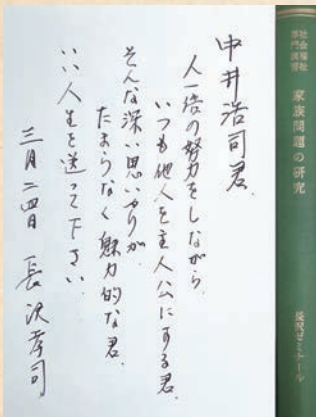 中井浩司君、
人一倍の努力をしながら、
いつも他人を主人公にする君、
そんな深い思いやりが、
たまらなく魅力的な君、
いい人生を送って下さい。
三月二四日 長沢孝司
社会福祉
専門演習
家族問題の研究
長沢ゼミナール